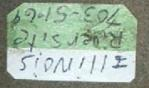 Illinois
Riverside
703-51-69